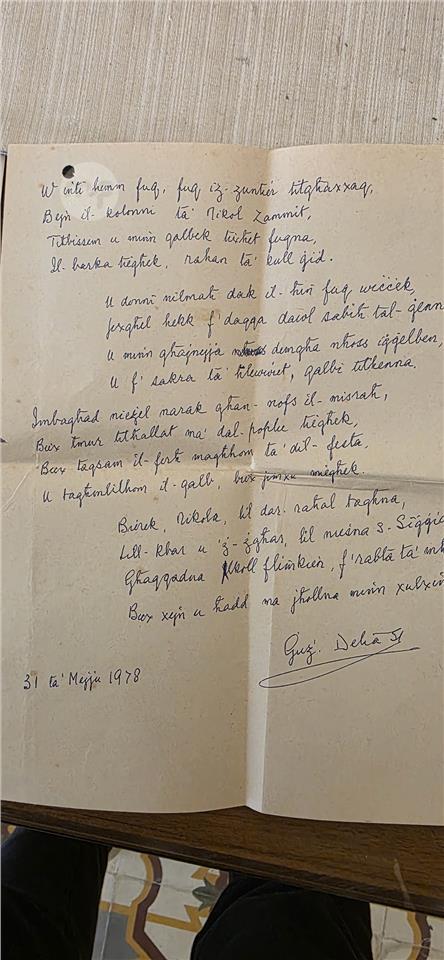 W inti hemm fuq, fuq iz-zuntier titgħaxxaq,
Bejn il-kolonni ta' Nikol Zammit,
Titbissem u minn qalbek titfet fuqna,
Il-barka tiegħek, raħan ta' kull ġid.
U donni nilmaħ dak il-ħin fuq wiċċek,
Jexgħel hekk f'daqqa dawl sabiħ tal-ġenn
U minn għajnejja demgħa nħoss iġġelben,
U f'sakra ta' tlewwiet, qalbi titkenna.
Imbagħad nieżel narak għan-nofs il-misraħ,
Biex tmur titħallat ma' dal-poplu tiegħek,
Biex taqsam il-ferħ magħhom ta' dil-festa,
U tagħmlilhom il-qalb, biex jimxu miegħek.
Bierek, Nikola, lil dar-raħal tagħna,
Lill-kbar u 'ż-żgħar, lil niesna s-Siġġie
Għaqqadna lkoll flimkien, f'rabta ta' mħ
Biex xejn u ħadd ma jħollna minn xulxin
Ġuż. Delia SJ
31 ta' Mejju 1978